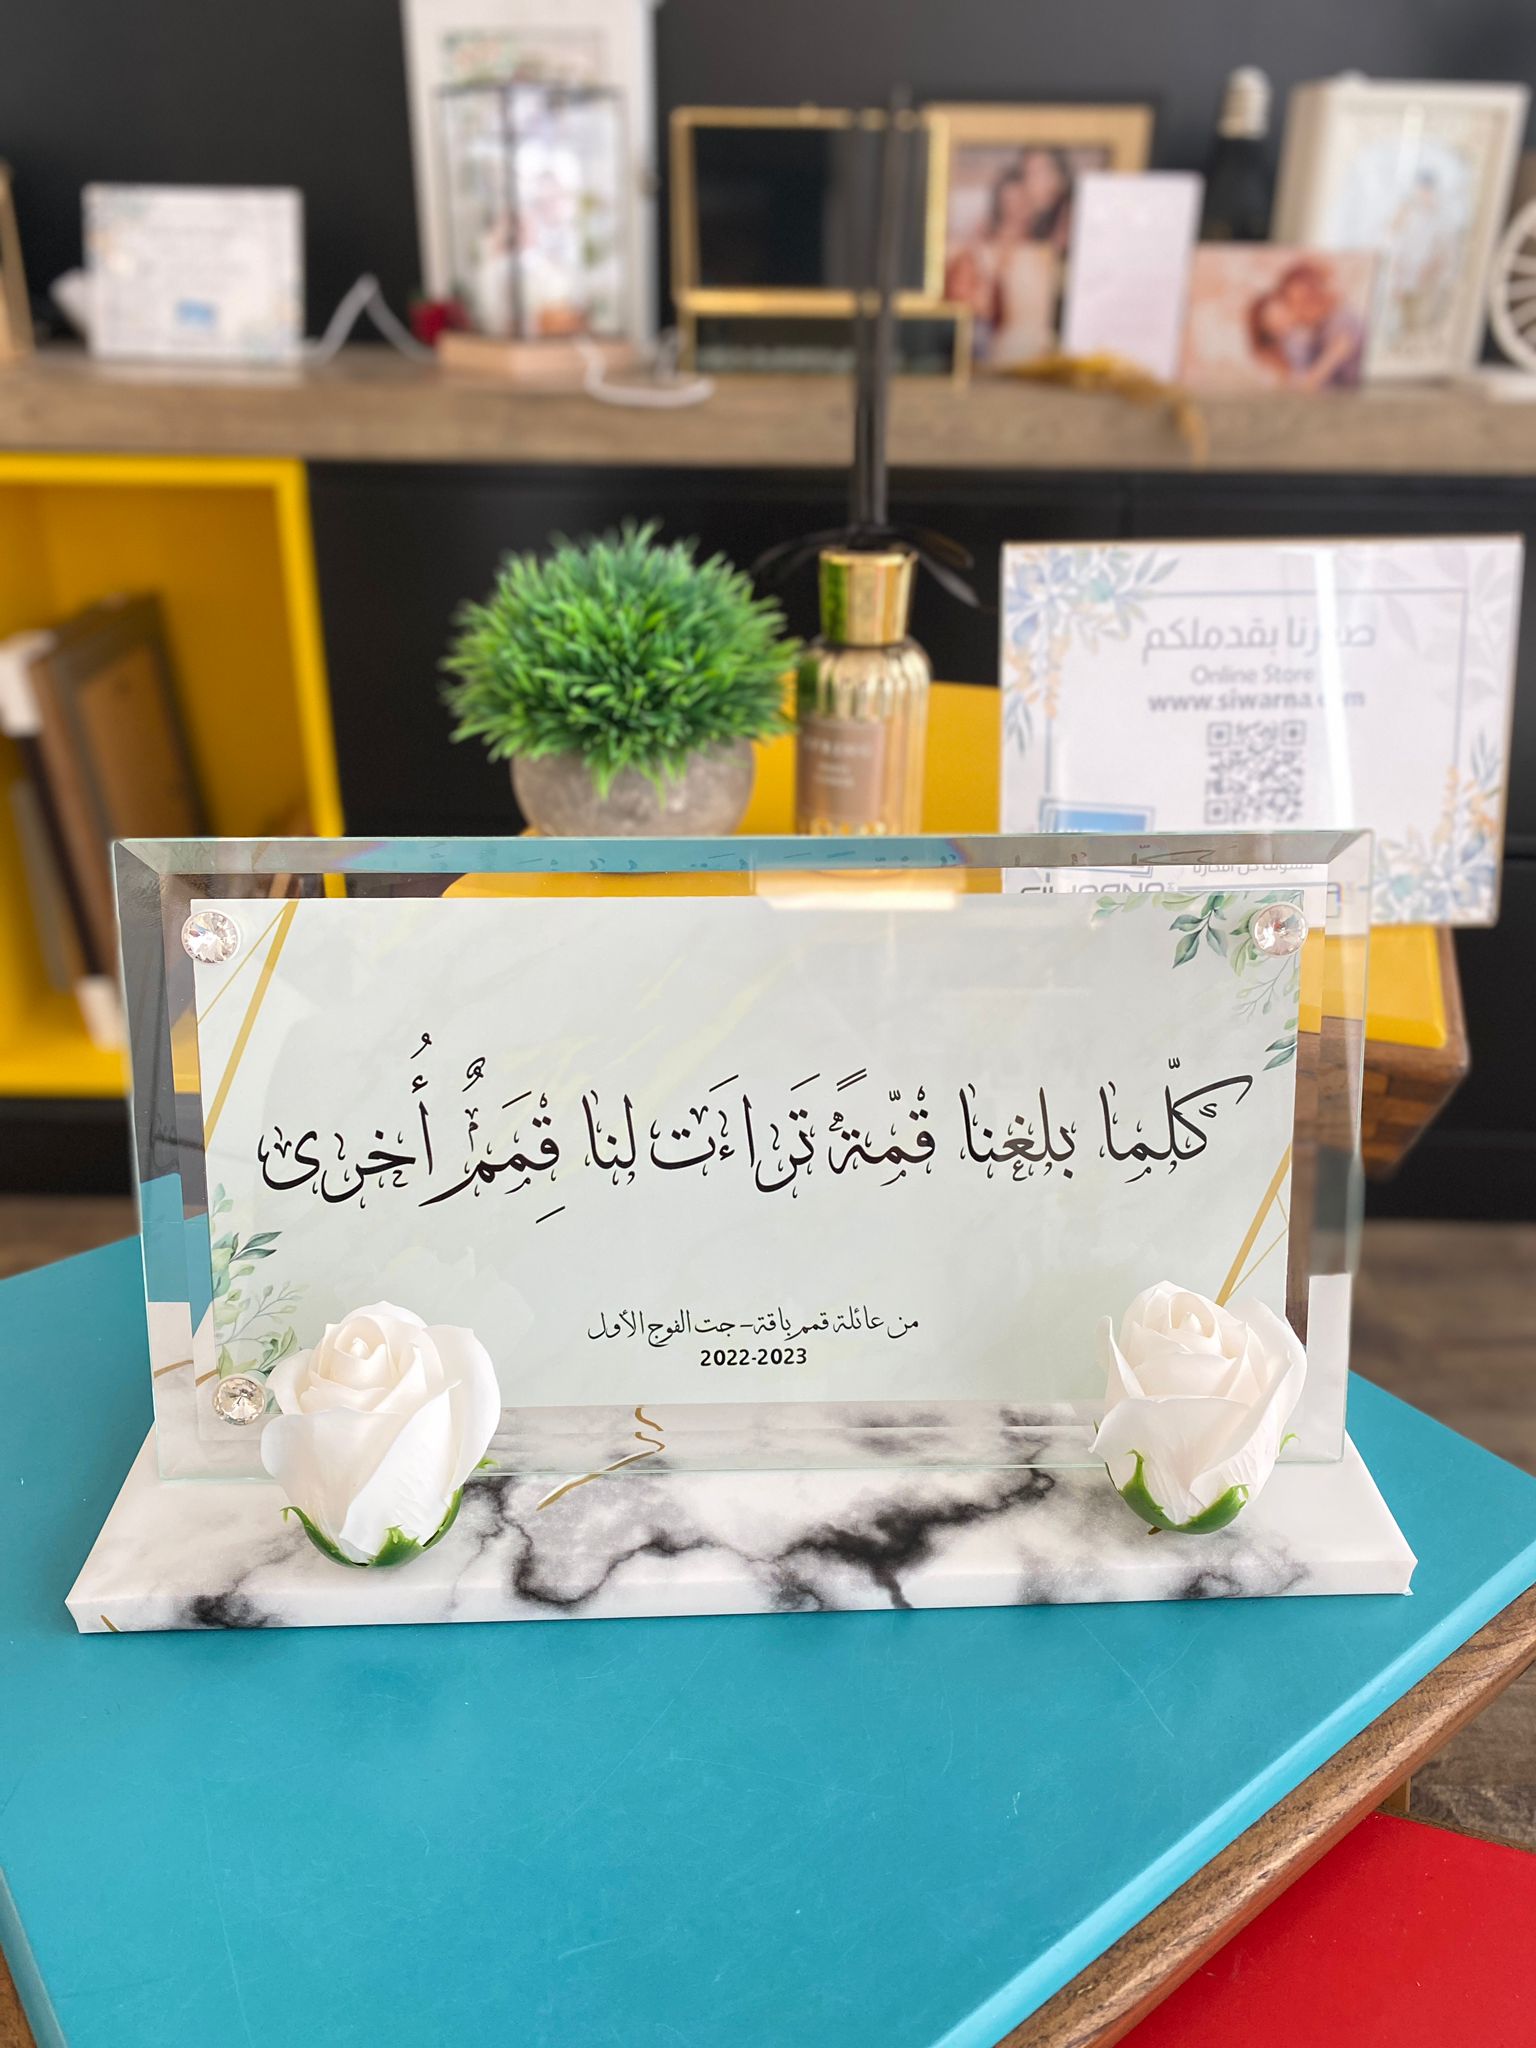 صورنا بقدملكم
Online Store
www.siwarna.com
كلّما بلغنا قمّةً تَراءَت لنا قِمَمٌ أُخرى
من عائلة قمم باقة - جت الفوج الأول
2022-2023